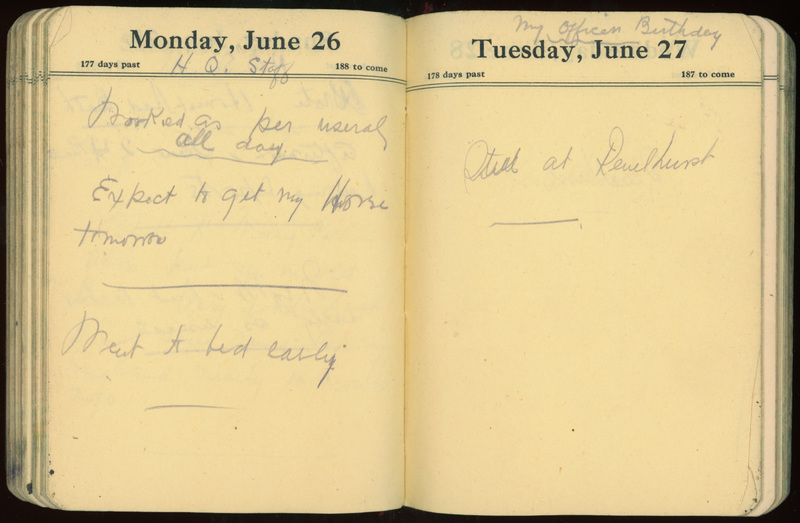 Monday, June 26
177 days past
188 to come
H Q. Staff
Worked as per usual
all day
Expect to get my Horse
tomorrow
Went to bed early
My Officers Birthday
Tuesday, June 27
178 days past
187 to come
Still at Penelhurst